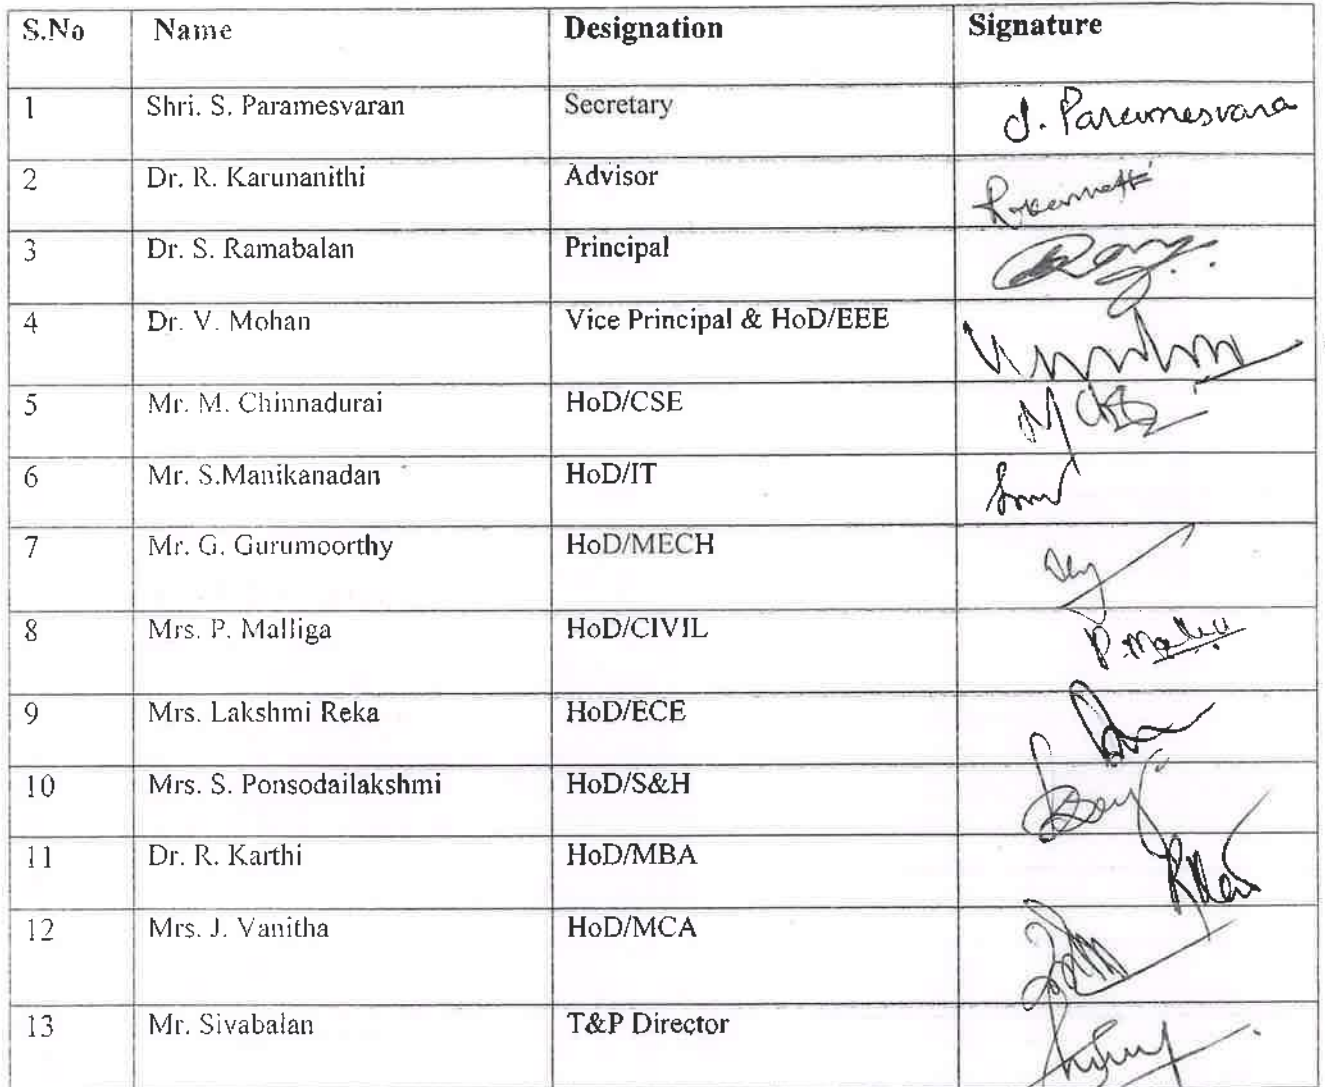 S.No Name Designation Signature
1 Shri. S. Paramesvaran Secretary J. Paramesvara
2 Dr. R. Karunanithi Advisor
3 Dr. S. Ramabalan Principal
4 Dr. V. Mohan Vice Principal & HoD/EEE
5 Mr. M. Chinnadurai HoD/CSE
6 Mr. S.Manikanadan HoD/IT
7 Mr. G. Gurumoorthy HoD/MECH
8 Mrs. P. Malliga HoD/CIVIL
9 Mrs. Lakshmi Reka HoD/ECE
10 Mrs. S. Ponsodailakshmi HoD/S&H
11 Dr. R. Karthi HoD/MBA
12 Mrs. J. Vanitha HoD/MCA
13 Mr. Sivabalan T&P Director